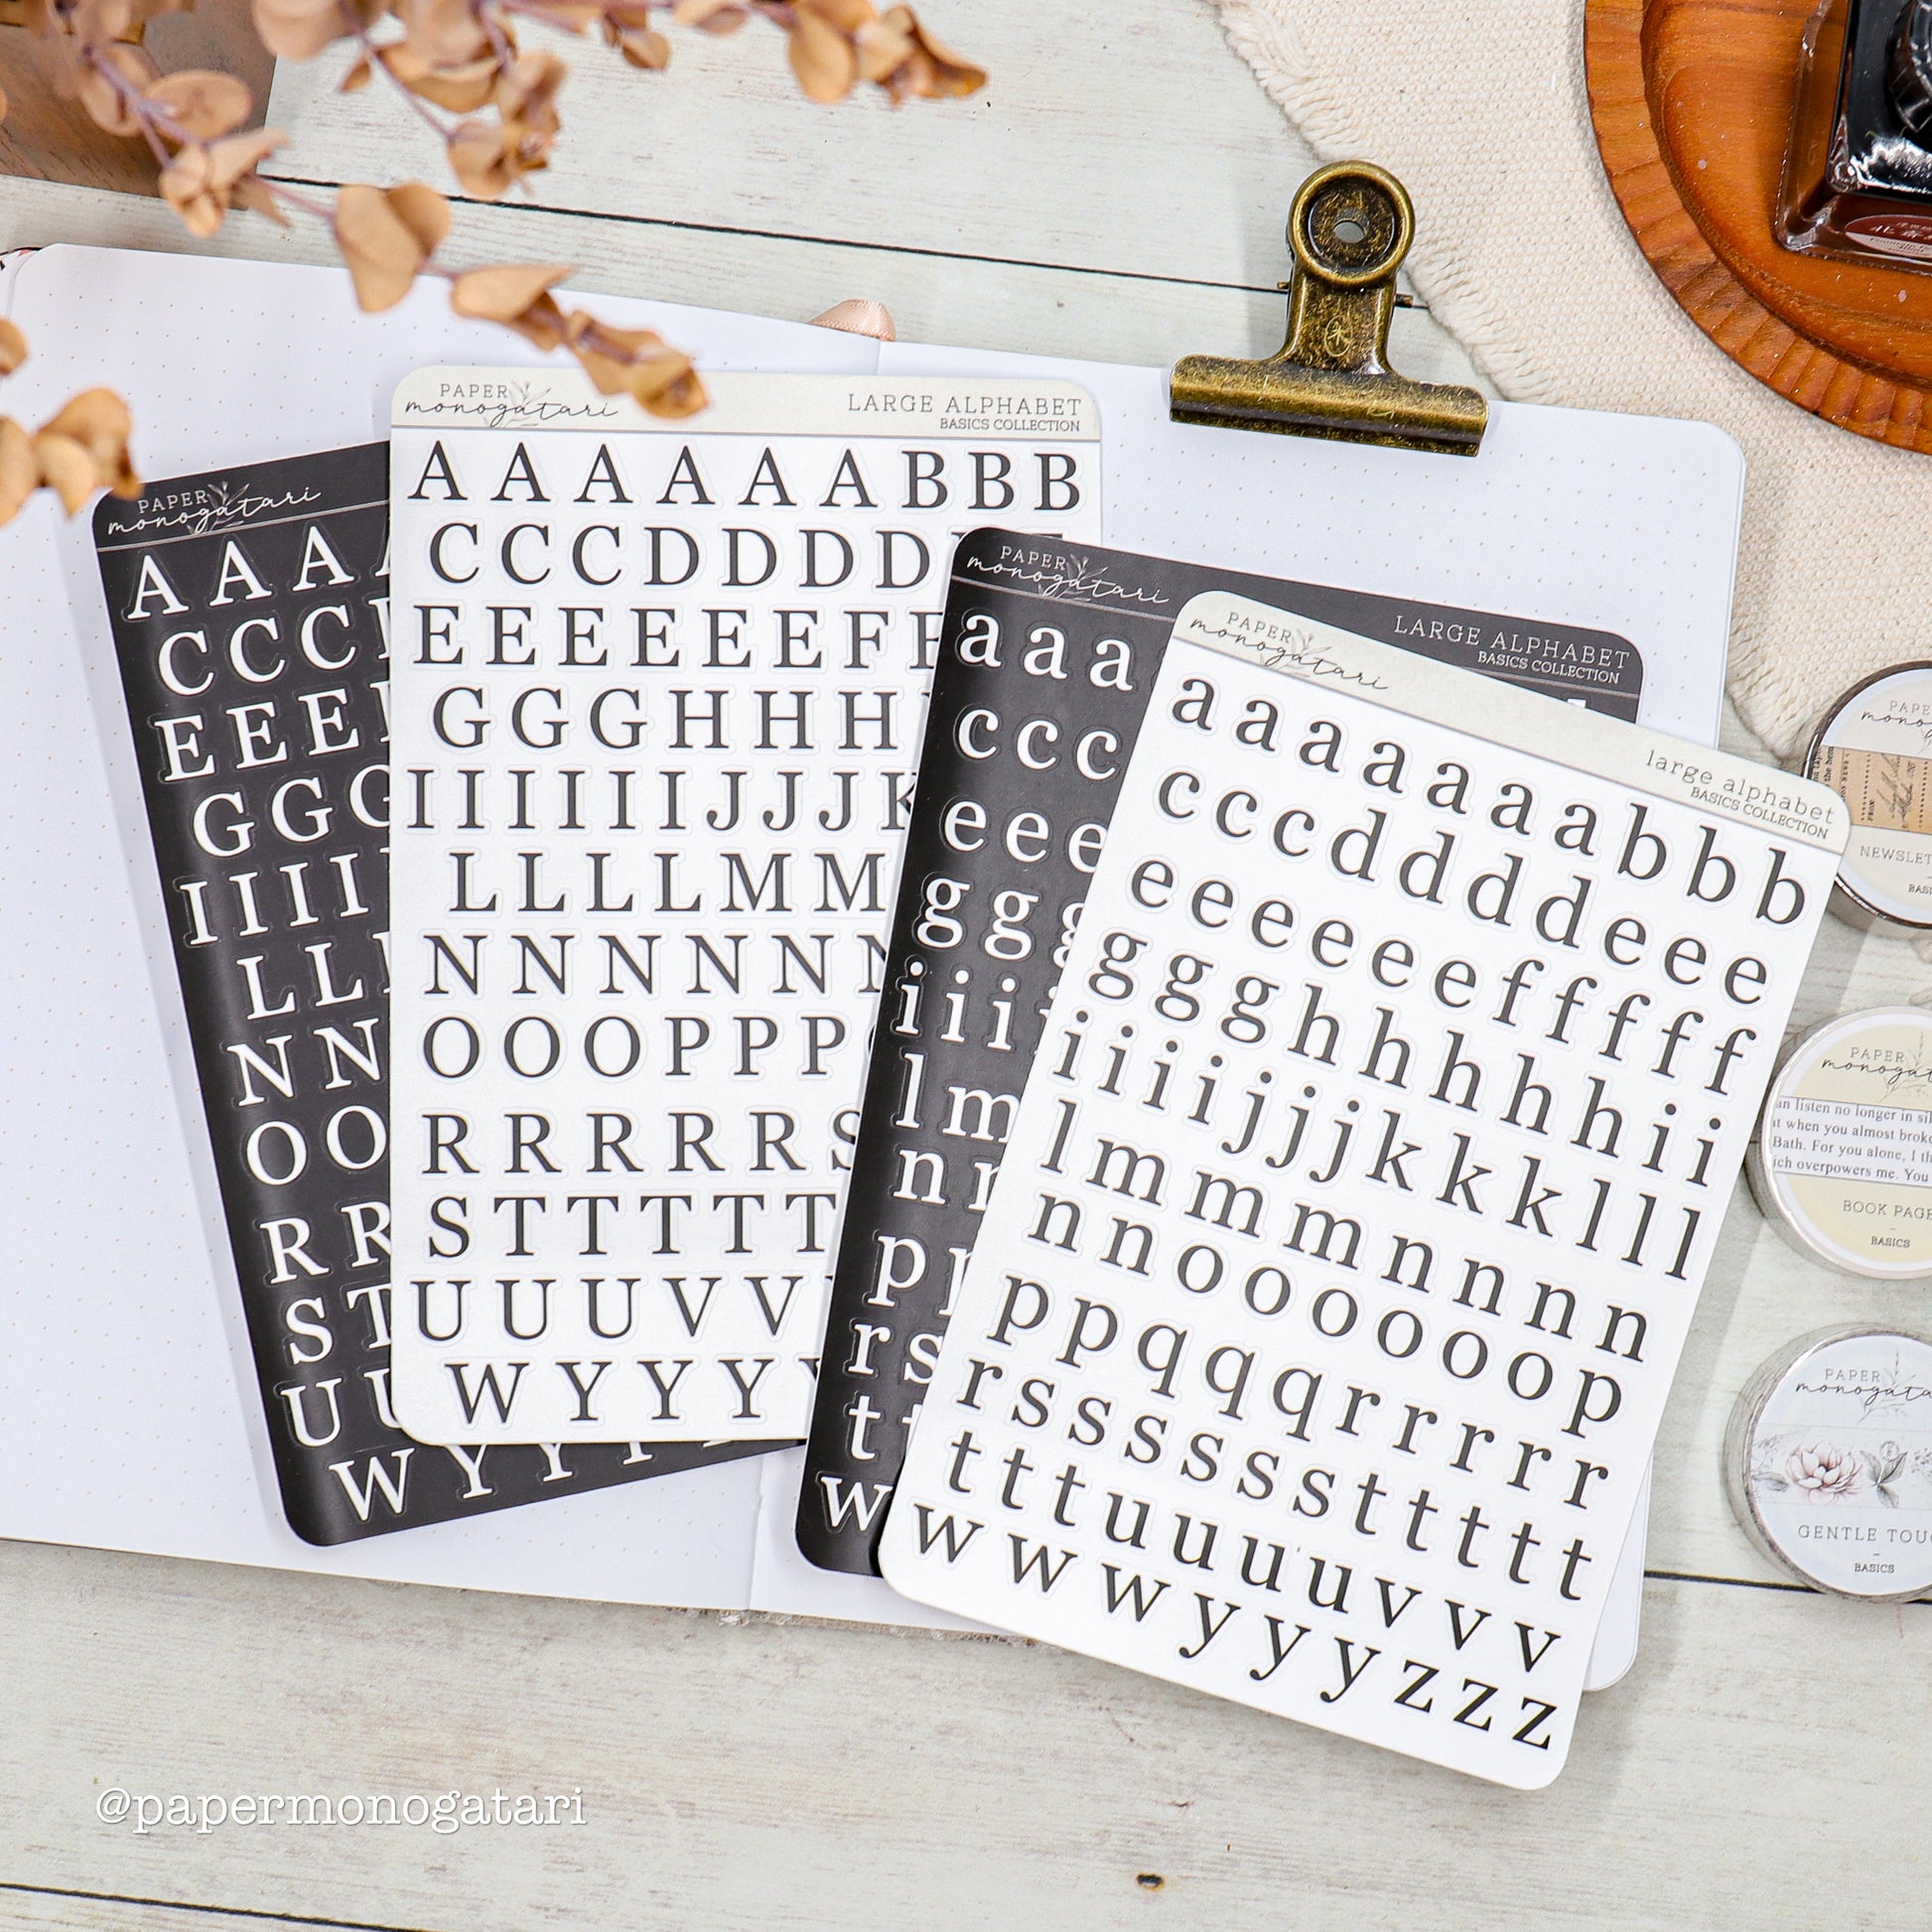 PAPER
monogatari
A A A
C C C
E E E
G G G
I I I I
L L
N N
O O
R R
S T
U U
W Y Y Y
PAPER
monogatari
LARGE ALPHABET
BASICS COLLECTION
A A A A A A B B B
C C C D D D D
E E E E E E F F
G G G H H H
I I I I I I J J J K
L L L L M M
N N N N N N
O O O P P P
R R R R R S
S T T T T T
U U U V V
W Y Y Y
PAPER
monogatari
LARGE ALPHABET
BASICS COLLECTION
a a a
c c c
e e e
g g g
i i i
l m
n
p
r s
t
w
PAPER
monogatari
large alphabet
BASICS COLLECTION
a a a a a a a b b b
c c c d d d d e e e
e e e e e e f f f f f
g g g h h h h h i i
i i i i j j j k k k l l l
l m m m m n n n n
n n o o o o o o p
p p q q q q r r r r r
r s s s s s s t t t t t
t t t u u u u v v v
w w w w y y y z z z
NEWSLET
BAS
PAPER
an listen no longer in sil
it when you almost brok
Bath. For you alone, I th
ich overpowers me. You
BOOK PAGE
BASICS
PAPER
GENTLE TOU
BASICS
@papermonogatari